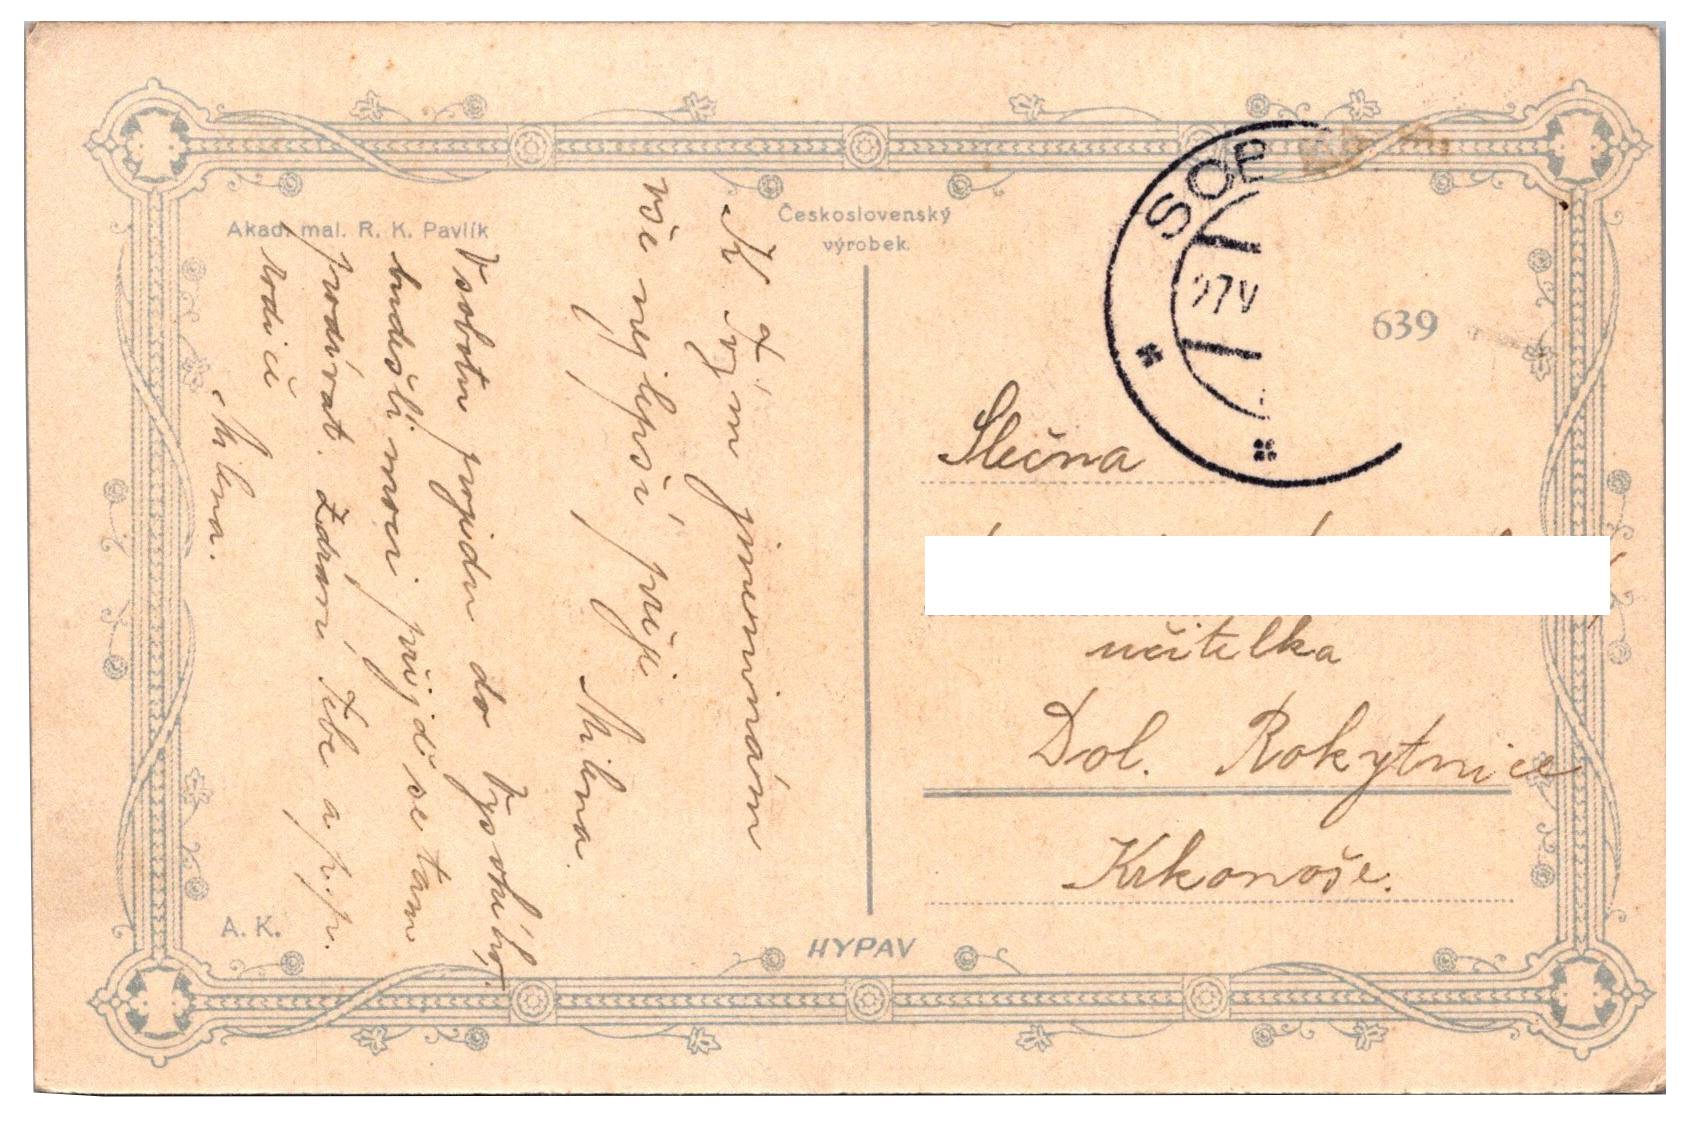 Akad. mal. R. K. Pavlík
Československý
výrobek.
639
SOB
27 V
K Tvým jmeninám
vše nejlepší přeje
Milena.
V sobotu pojedu do Vysokého,
budeš-li moci přijď se tam
podívat. Zdraví Tebe a p. p.
rodiče
Milena.
Slečna
učitelka
Dol. Rokytnice
Krkonoše.
A. K.
HYPAV